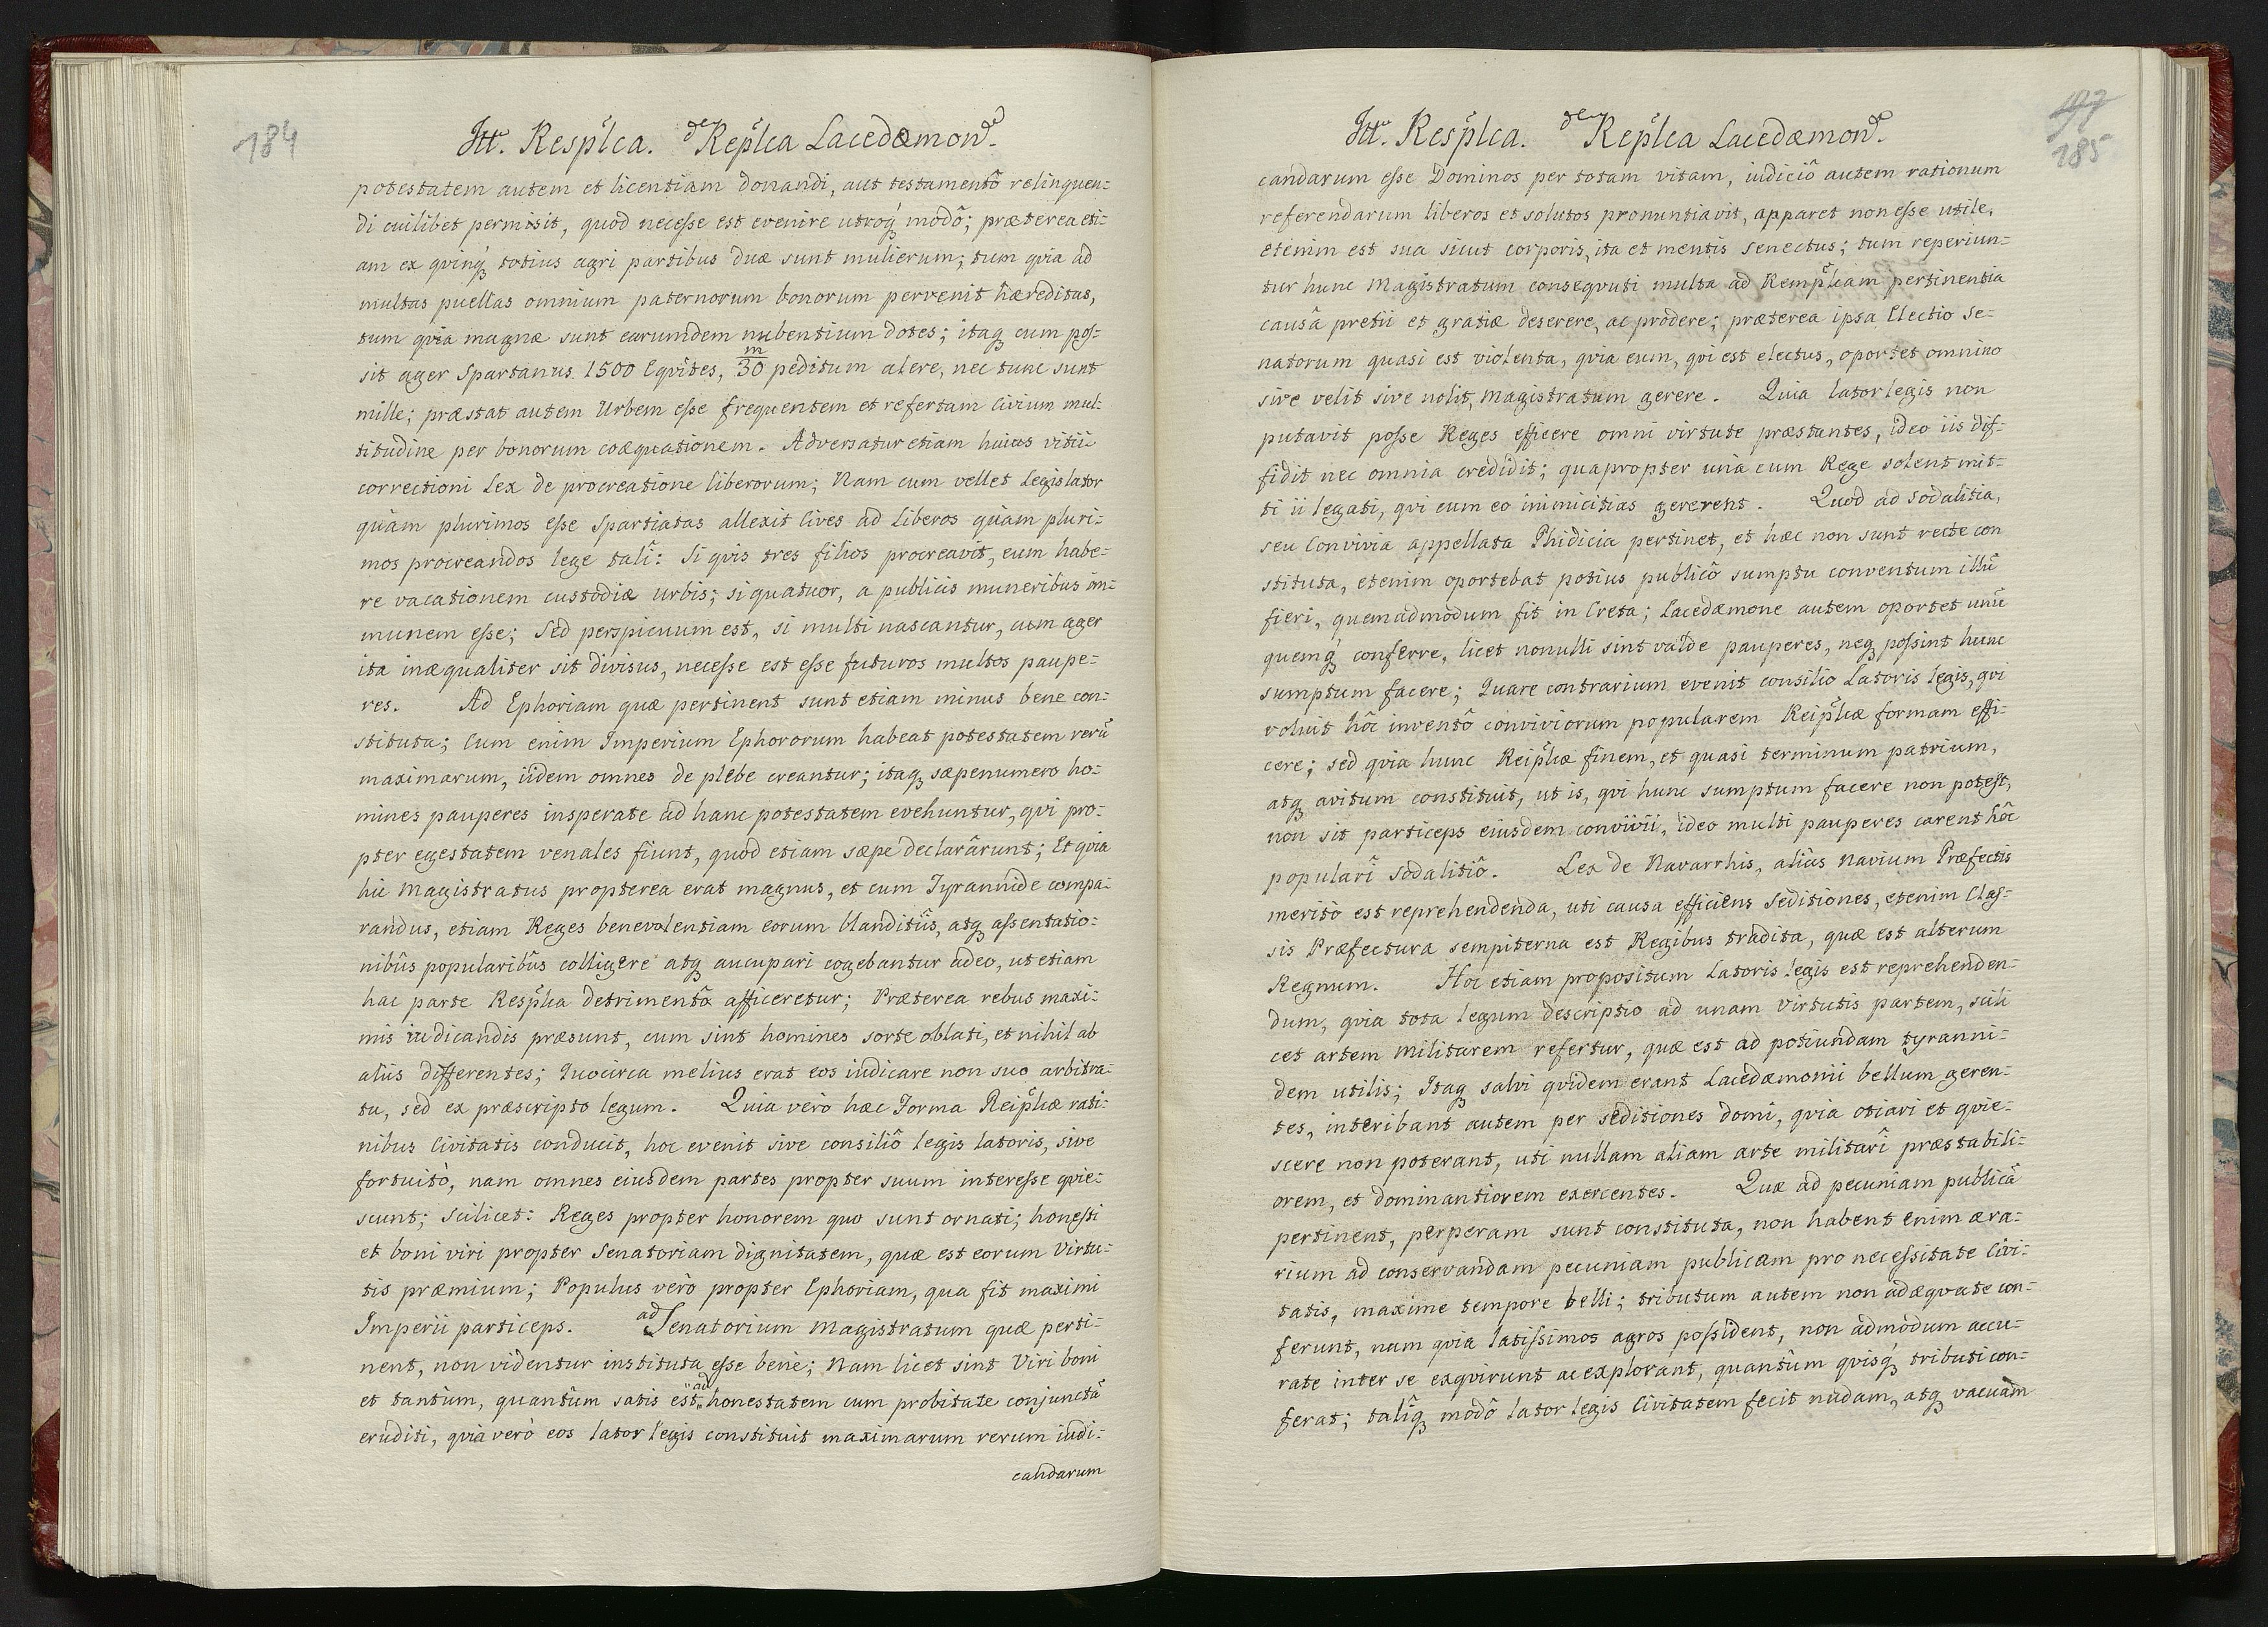 184
Itt. Resplca. de Replca Lacedæmonde.
potestatem autem et licentiam donandi, aut testamentô relinquen=
di cuilibet permisit, quod necesse est evenire utroq́ modô; præterea eti=
am ex qvinq́ totius agri partibus duæ sunt mulierum; tum qvia ad
multas puellas omnium paternorum bonorum pervenit hæreditas,
tum qvia magnæ sunt earumdem nubentium dotes; itaq cum pos=
sit ager Spartanus 1500 Eqvites, m 30 peditum alere, nec tunc sunt
mille; præstat autem Urbem esse frequentem et refertam Civium mul=
titudine per bonorum coæquationem. Adversatur etiam huius vitii
correctioni Lex de procreatione liberorum; Nam cum vellet Legislator
quàm plurimos esse Spartiatas allexit Cives ad Liberos quàm pluri=
mos procreandos lege talî: Si qvis tres filios procreavit, eum habe=
re vacationem custodiæ Urbis; si quatuor, a publicis muneribus im=
munem esse; Sed perspicuum est, si multi nascantur, cum ager
ita inæqualiter sit divisus, necesse est esse futuros multos paupe=
res. Ad Ephoriam quæ pertinent sunt etiam minus bene con=
stituta; Cum enim Imperium Ephororum habeat potestatem rerū
maximarum, iidem omnes de plebe creantur; itaq sæpenumero ho=
mines pauperes insperate ad hanc potestatem evehuntur, qvi pro=
pter egestatem venales fiunt, quod etiam sæpe declarârunt; Et qvia
hic Magistratus propterea erat magnus, et cum Tyrannide compa=
randus, etiam Reges benevolentiam eorum blanditiîs, atq assentatio=
nibûs popularibûs colligere atq aucupari cogebantur adeo, ut etiam
hac parte Resplca detrimentô afficeretur; Præterea rebus maxi=
mis iudicandis præsunt, cum sint homines sorte oblati, et nihil ab
aliis differentes; Quocirca melius erat eos iudicare non suo arbitra=
tu, sed ex præscripto legum. Quia verò hæc Forma Reiplcæ rati=
nibus Civitatis conducit, hoc evenit sive consiliô legis latoris, sive
fortuitò, nam omnes eiusdem partes propter suum interesse qvie=
scunt; Scilicet: Reges propter honorem quo sunt ornati; honesti
et boni viri propter Senatoriam dignitatem, quæ est eorum Virtu=
tis præmium; Populus verò propter Ephoriam, qua fit maximi
Imperii particeps. ad Senatorium Magistratum quæ perti=
nent, non videntur instituta esse bene; Nam licet sint Viri boni
et tantùm, quantùm satis est ad honestatem cum probitate conjunctā
eruditi, qvia verò eos lator legis constituit maximarum rerum iudi=
candarum
197
185
Itt. Resplca. de Replca Lacedæmonde.
candarum esse Dominos per totam vitam, iudiciô autem rationum
referendarum liberos et solutos pronuntiavit, apparet non esse utile,
etenim est sua sicut corporis, ita et mentis senectus; tum reperiun=
tur hunc Magistratum conseqvuti multa ad Remplcam pertinentia
causâ pretii et gratiæ deserere, ac prodere; præterea ipsa Electio Se=
natorum quasi est violenta, qvia eum, qvi est electus, oportet omnino
sive velit sive nolit, Magistratum gerere. Quia lator legis non
putavit posse Reges efficere omni virtute præstantes, ideo iis dif=
fidit nec omnia credidit; quapropter unà cum Rege solent mit=
ti ii legati, qvi cum eo inimicitias gererent. Quod ad sodalitia,
seu Convivia appellata Phidicia pertinet, et hæc non sunt recte con
stituta, etenim oportebat potius publicô sumptu conventum illū
fieri, quemadmodum fit in Creta; Lacedæmone autem oportet unū
quemq́ conferre, licet nonulli sint valde pauperes, neq possint hunc
sumptum facere; Quare contrarium evenit consilio Latoris legis, qvi
voluit hôc inventô conviviorum popularem Reiplcæ formam effi=
cere; sed qvia hunc Reiplcæ finem, et quasi terminum patrium,
atq avitum constituit, ut is, qvi hunc sumptum facere non potest,
non sit particeps eiusdem convivii, ideo multi pauperes carent hôc
popularî sodalitiô. Lex de Navarrhis, aliàs Navium Præfectis
meritò est reprehendenda, uti causa efficiens seditiones, etenim Clas=
sis Præfectura sempiterna est Regibus tradita, quæ est alterum
Regnum. Hoc etiam propositum Latoris legis est reprehenden=
dum, qvia tota legum descriptio ad unam Virtutis partem, scili
cet artem militarem refertur, quæ est ad potiundam tyranni=
dem utilis; Itaq salvi qvidem erant Lacedæmonii bellum geren=
tes, interibant autem per seditiones domi, qvia otiari et qvie=
scere non poterant, uti nullam aliam arte militarî præstabili=
orem, et dominantiorem exercentes. Quæ ad pecuniam publicā
pertinent, perperam sunt constituta, non habent enim æra=
rium ad conservandam pecuniam publicam pro necessitate Civi=
tatis, maxime tempore belli; tributum autem non adæqvate con=
ferunt, nam qvia latissimos agros possident, non admodum accu=
rate inter se exqvirunt ac explorant, quantùm qvisq́ tributi con=
ferat; talîq modô lator legis Civitatem fecit nudam, atq vacuam